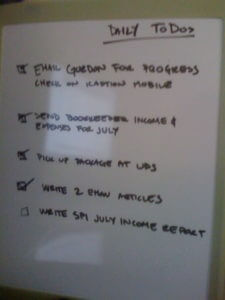 DAILY TODOS
EMAIL GORDON FOR PROGRESS
CHECK ON MOBILE
SEND BOOKKEEPER INCOME &
EXPENSES FOR JULY
PICK UP PACKAGE AT UPS
WRITE 2 EHOW ARTICLES
WRITE SPI JULY INCOME REPORT